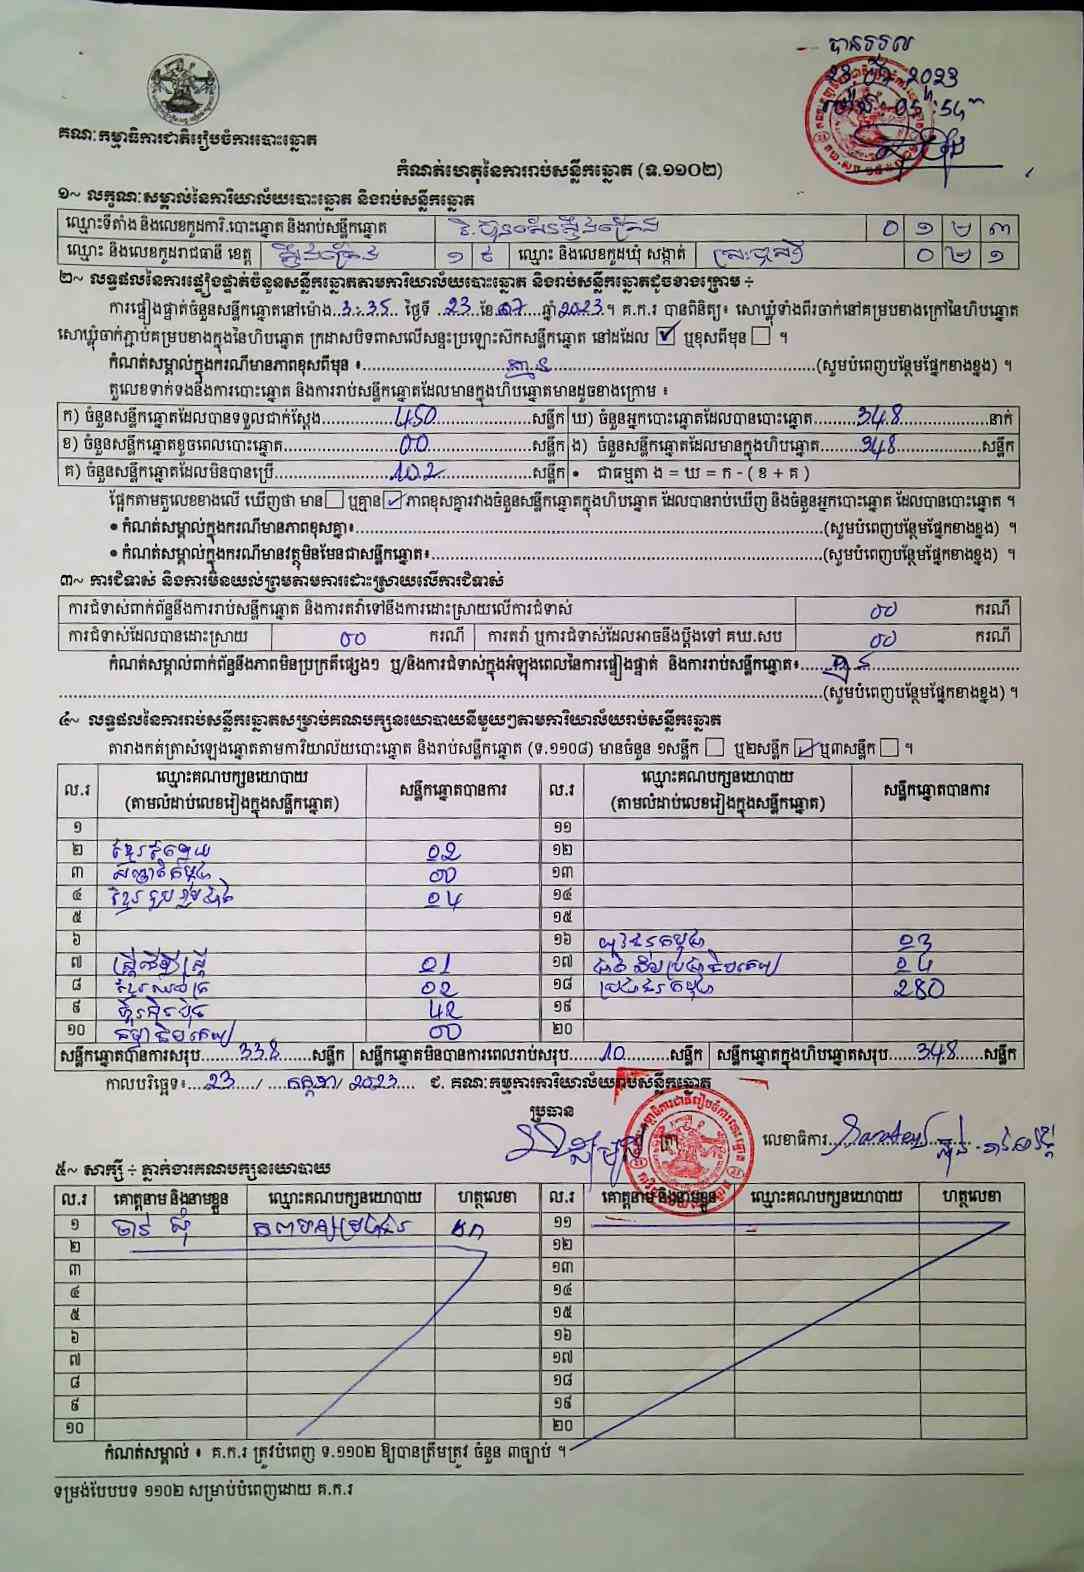 បានទទួល
23 2023
ម៉ោង: 05:54
គណៈកម្មាធិការជាតិរៀបចំការបោះឆ្នោត
កំណត់ហេតុនៃការរាប់សន្លឹកឆ្នោត (ទ.១១០២)
១~ លក្ខណៈសម្គាល់នៃការិយាល័យបោះឆ្នោត និងរាប់សន្លឹកឆ្នោត
ឈ្មោះទីតាំង និងលេខកូដការិ.បោះឆ្នោត និងរាប់សន្លឹកឆ្នោត ០ ១ ២ ៣
ឈ្មោះ និងលេខកូដរាជធានី ខេត្ត ស្ទឹងត្រែង ១ ៩ ឈ្មោះ និងលេខកូដឃុំ សង្កាត់ ស្រះឫស្សី ០ ២ ១
២~ លទ្ធផលនៃការផ្ទៀងផ្ទាត់ចំនួនសន្លឹកឆ្នោតតាមការិយាល័យបោះឆ្នោត និងរាប់សន្លឹកឆ្នោតដូចខាងក្រោម ÷
ការផ្ទៀងផ្ទាត់ចំនួនសន្លឹកឆ្នោតនៅម៉ោង 3:35 ថ្ងៃទី 23 ខែ 07 ឆ្នាំ 2023 ។ គ.ក.រ បានពិនិត្យ៖ សោឃ្លុំទាំងពីរចាក់នៅគម្របខាងក្រៅនៃហិបឆ្នោត
សោឃ្លុំចាក់ភ្ជាប់គម្របខាងក្នុងនៃហិបឆ្នោត ក្រដាសបិទពាសលើសន្ទះប្រឡោះស៊កសន្លឹកឆ្នោត នៅដដែល ✓ ឬខុសពីមុន ។
កំណត់សម្គាល់ក្នុងករណីមានភាពខុសពីមុន ៖ គ្មាន (សូមបំពេញបន្ថែមផ្នែកខាងខ្នង) ។
តួលេខទាក់ទងនឹងការបោះឆ្នោត និងការរាប់សន្លឹកឆ្នោតដែលមានក្នុងហិបឆ្នោតមានដូចខាងក្រោម ៖
ក) ចំនួនសន្លឹកឆ្នោតដែលបានទទួលជាក់ស្តែង 450 សន្លឹក ឃ) ចំនួនអ្នកបោះឆ្នោតដែលបានបោះឆ្នោត 348 នាក់
ខ) ចំនួនសន្លឹកឆ្នោតខូចពេលបោះឆ្នោត 00 សន្លឹក ង) ចំនួនសន្លឹកឆ្នោតដែលមានក្នុងហិបឆ្នោត 348 សន្លឹក
គ) ចំនួនសន្លឹកឆ្នោតដែលមិនបានប្រើ 102 សន្លឹក • ជាធម្មតា ង = ឃ = ក - ( ខ + គ )
ផ្អែកតាមតួលេខខាងលើ ឃើញថា មាន ឬគ្មាន ✓ ភាពខុសគ្នារវាងចំនួនសន្លឹកឆ្នោតក្នុងហិបឆ្នោត ដែលបានរាប់ឃើញ និងចំនួនអ្នកបោះឆ្នោត ដែលបានបោះឆ្នោត ។
• កំណត់សម្គាល់ក្នុងករណីមានភាពខុសគ្នា៖ (សូមបំពេញបន្ថែមផ្នែកខាងខ្នង) ។
• កំណត់សម្គាល់ក្នុងករណីមានវត្ថុមិនមែនជាសន្លឹកឆ្នោត៖ (សូមបំពេញបន្ថែមផ្នែកខាងខ្នង) ។
៣~ ការជំទាស់ និងការមិនយល់ព្រមតាមការដោះស្រាយលើការជំទាស់
ការជំទាស់ពាក់ព័ន្ធនឹងការរាប់សន្លឹកឆ្នោត និងការតវ៉ាទៅនឹងការដោះស្រាយលើការជំទាស់ 00 ករណី
ការជំទាស់ដែលបានដោះស្រាយ 00 ករណី ការតវ៉ា ឬការជំទាស់ដែលអាចនឹងប្តឹងទៅ គឃ.សប 00 ករណី
កំណត់សម្គាល់ពាក់ព័ន្ធនឹងភាពមិនប្រក្រតីផ្សេងៗ ឬ/និងការជំទាស់ក្នុងអំឡុងពេលនៃការផ្ទៀងផ្ទាត់ និងការរាប់សន្លឹកឆ្នោត៖ គ្មាន
(សូមបំពេញបន្ថែមផ្នែកខាងខ្នង) ។
៤~ លទ្ធផលនៃការរាប់សន្លឹកឆ្នោតសម្រាប់គណបក្សនយោបាយនីមួយៗតាមការិយាល័យរាប់សន្លឹកឆ្នោត
តារាងកត់ត្រាសំឡេងឆ្នោតតាមការិយាល័យបោះឆ្នោត និងរាប់សន្លឹកឆ្នោត (ទ.១១០៨) មានចំនួន ១សន្លឹក ឬ២សន្លឹក ✓ ឬ៣សន្លឹក ។
ល.រ ឈ្មោះគណបក្សនយោបាយ (តាមលំដាប់លេខរៀងក្នុងសន្លឹកឆ្នោត) សន្លឹកឆ្នោតបានការ ល.រ ឈ្មោះគណបក្សនយោបាយ (តាមលំដាប់លេខរៀងក្នុងសន្លឹកឆ្នោត) សន្លឹកឆ្នោតបានការ
១ ១១
២ 02 ១២
៣ សញ្ជាតិកម្ពុជា 00 ១៣
៤ ខ្មែររួបរួមជាតិ 04 ១៤
៥ ១៥
៦ ១៦ យុវជនកម្ពុជា 03
៧ ស្ត្រីដើម្បីស្ត្រី 01 ១៧ 04
៨ 02 ១៨ ប្រជាជនកម្ពុជា 280
៩ ហ៊្វុនស៊ិនប៉ិច 42 ១៩
១០ ធម្មាធិបតេយ្យ 00 ២០
សន្លឹកឆ្នោតបានការសរុប 338 សន្លឹក សន្លឹកឆ្នោតមិនបានការពេលរាប់សរុប 10 សន្លឹក សន្លឹកឆ្នោតក្នុងហិបឆ្នោតសរុប 348 សន្លឹក
កាលបរិច្ឆេទ៖ 23 / កក្កដា / 2023 ជ. គណៈកម្មការការិយាល័យរាប់សន្លឹកឆ្នោត
ប្រធាន
ត្រា លេខាធិការ
៥~ សាក្សី ÷ ភ្នាក់ងារគណបក្សនយោបាយ
ល.រ គោត្តនាម និងនាមខ្លួន ឈ្មោះគណបក្សនយោបាយ ហត្ថលេខា ល.រ គោត្តនាម និងនាមខ្លួន ឈ្មោះគណបក្សនយោបាយ ហត្ថលេខា
១ គណបក្សប្រជាជន ១១
២ ១២
៣ ១៣
៤ ១៤
៥ ១៥
៦ ១៦
៧ ១៧
៨ ១៨
៩ ១៩
១០ ២០
កំណត់សម្គាល់ ៖ គ.ក.រ ត្រូវបំពេញ ទ.១១០២ ឱ្យបានត្រឹមត្រូវ ចំនួន ៣ច្បាប់ ។
ទម្រង់បែបបទ ១១០២ សម្រាប់បំពេញដោយ គ.ក.រ